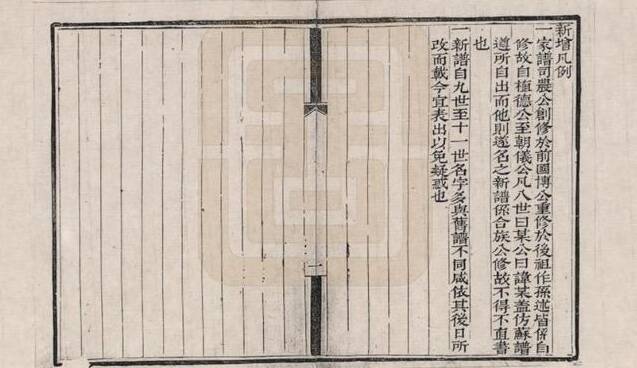 新增凡例
一家譜司農公創修於前國博公重修於後祖作孫述皆係自
修故自極德公至朝儀公凡八世曰某公曰諱某蓋仿蘇譜
道所自出而他則遂名之新譜係合族公修故不得不直書
也
一新譜自九世至十一世名字多與舊譜不同咸依其後日所
改而載今宜表出以免疑惑也
一